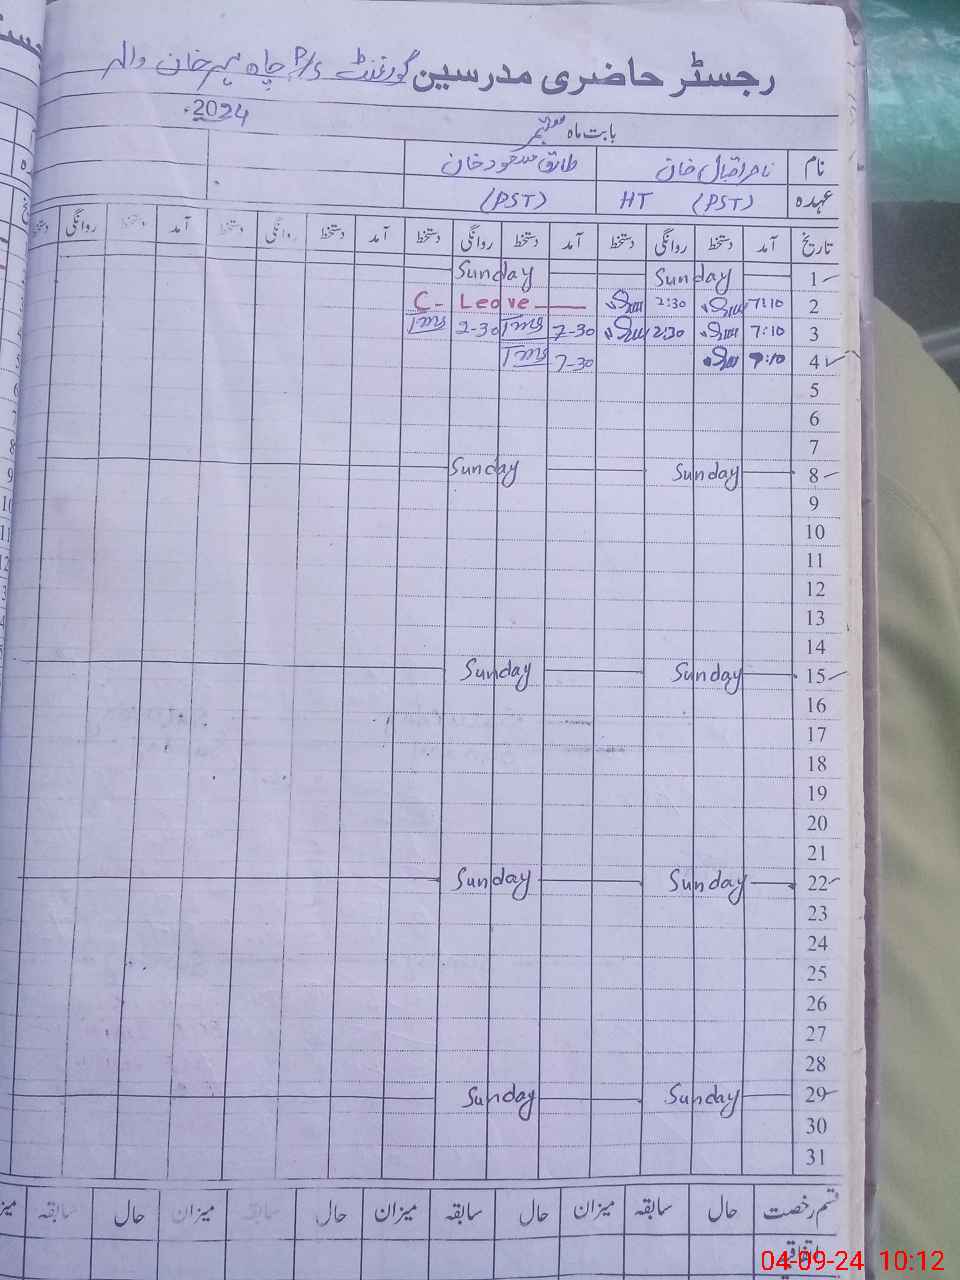 رجسٹر حاضری مدرسین گورنمنٹ P/S چاہ خان والہ
بابت ماہ ستمبر 2024
نام ناصر اقبال خان طارق مسعود خان
عہدہ (PST) HT (PST)
تاریخ آمد دستخط روانگی دستخط آمد دستخط روانگی دستخط آمد دستخط روانگی دستخط آمد دستخط روانگی دستخط
1 Sunday Sunday
2 7:10 2:30 C- Leave
3 7:10 2:30 7-30 2-30
4 7:10 7-30
5
6
7
8 Sunday Sunday
9
10
11
12
13
14
15 Sunday Sunday
16
17
18
19
20
21
22 Sunday Sunday
23
24
25
26
27
28
29 Sunday Sunday
30
31
قسم رخصت حال سابقہ میزان حال سابقہ میزان حال سابقہ میزان حال سابقہ میزان
04-09-24 10:12